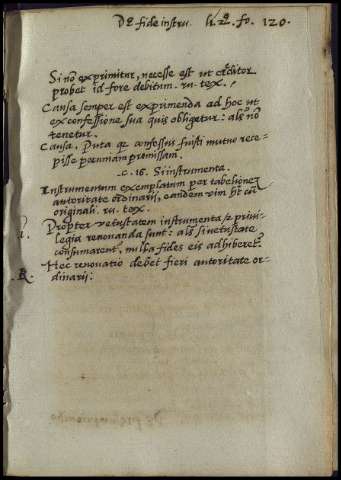 DE fide instru. li. 2. fo. 120.
Si nõ exprimitur, necesse est ut creditor
probet id fore debitum. ru. tex.
Causa semper est exprimenda ad hoc ut
ex confessione sua quis obligetur: als nõ
tenetur.
Causa. Puta qr confessus fuisti mutuo rece-
pisse pecuniam promissam.
.c. 16. Si instrumenta.
Instrumentum exemplatum per tabelionez
autoritate ordinarij, eandem vim hꝫ cũ
originali. ru. tex.
Propter vetustatem instrumenta & privi-
legia renouanda sunt: als si vetustate
consumarent, nulla fides eis adhiberet.
R. Hec renovatio debet fieri autoritate or-
dinarij: